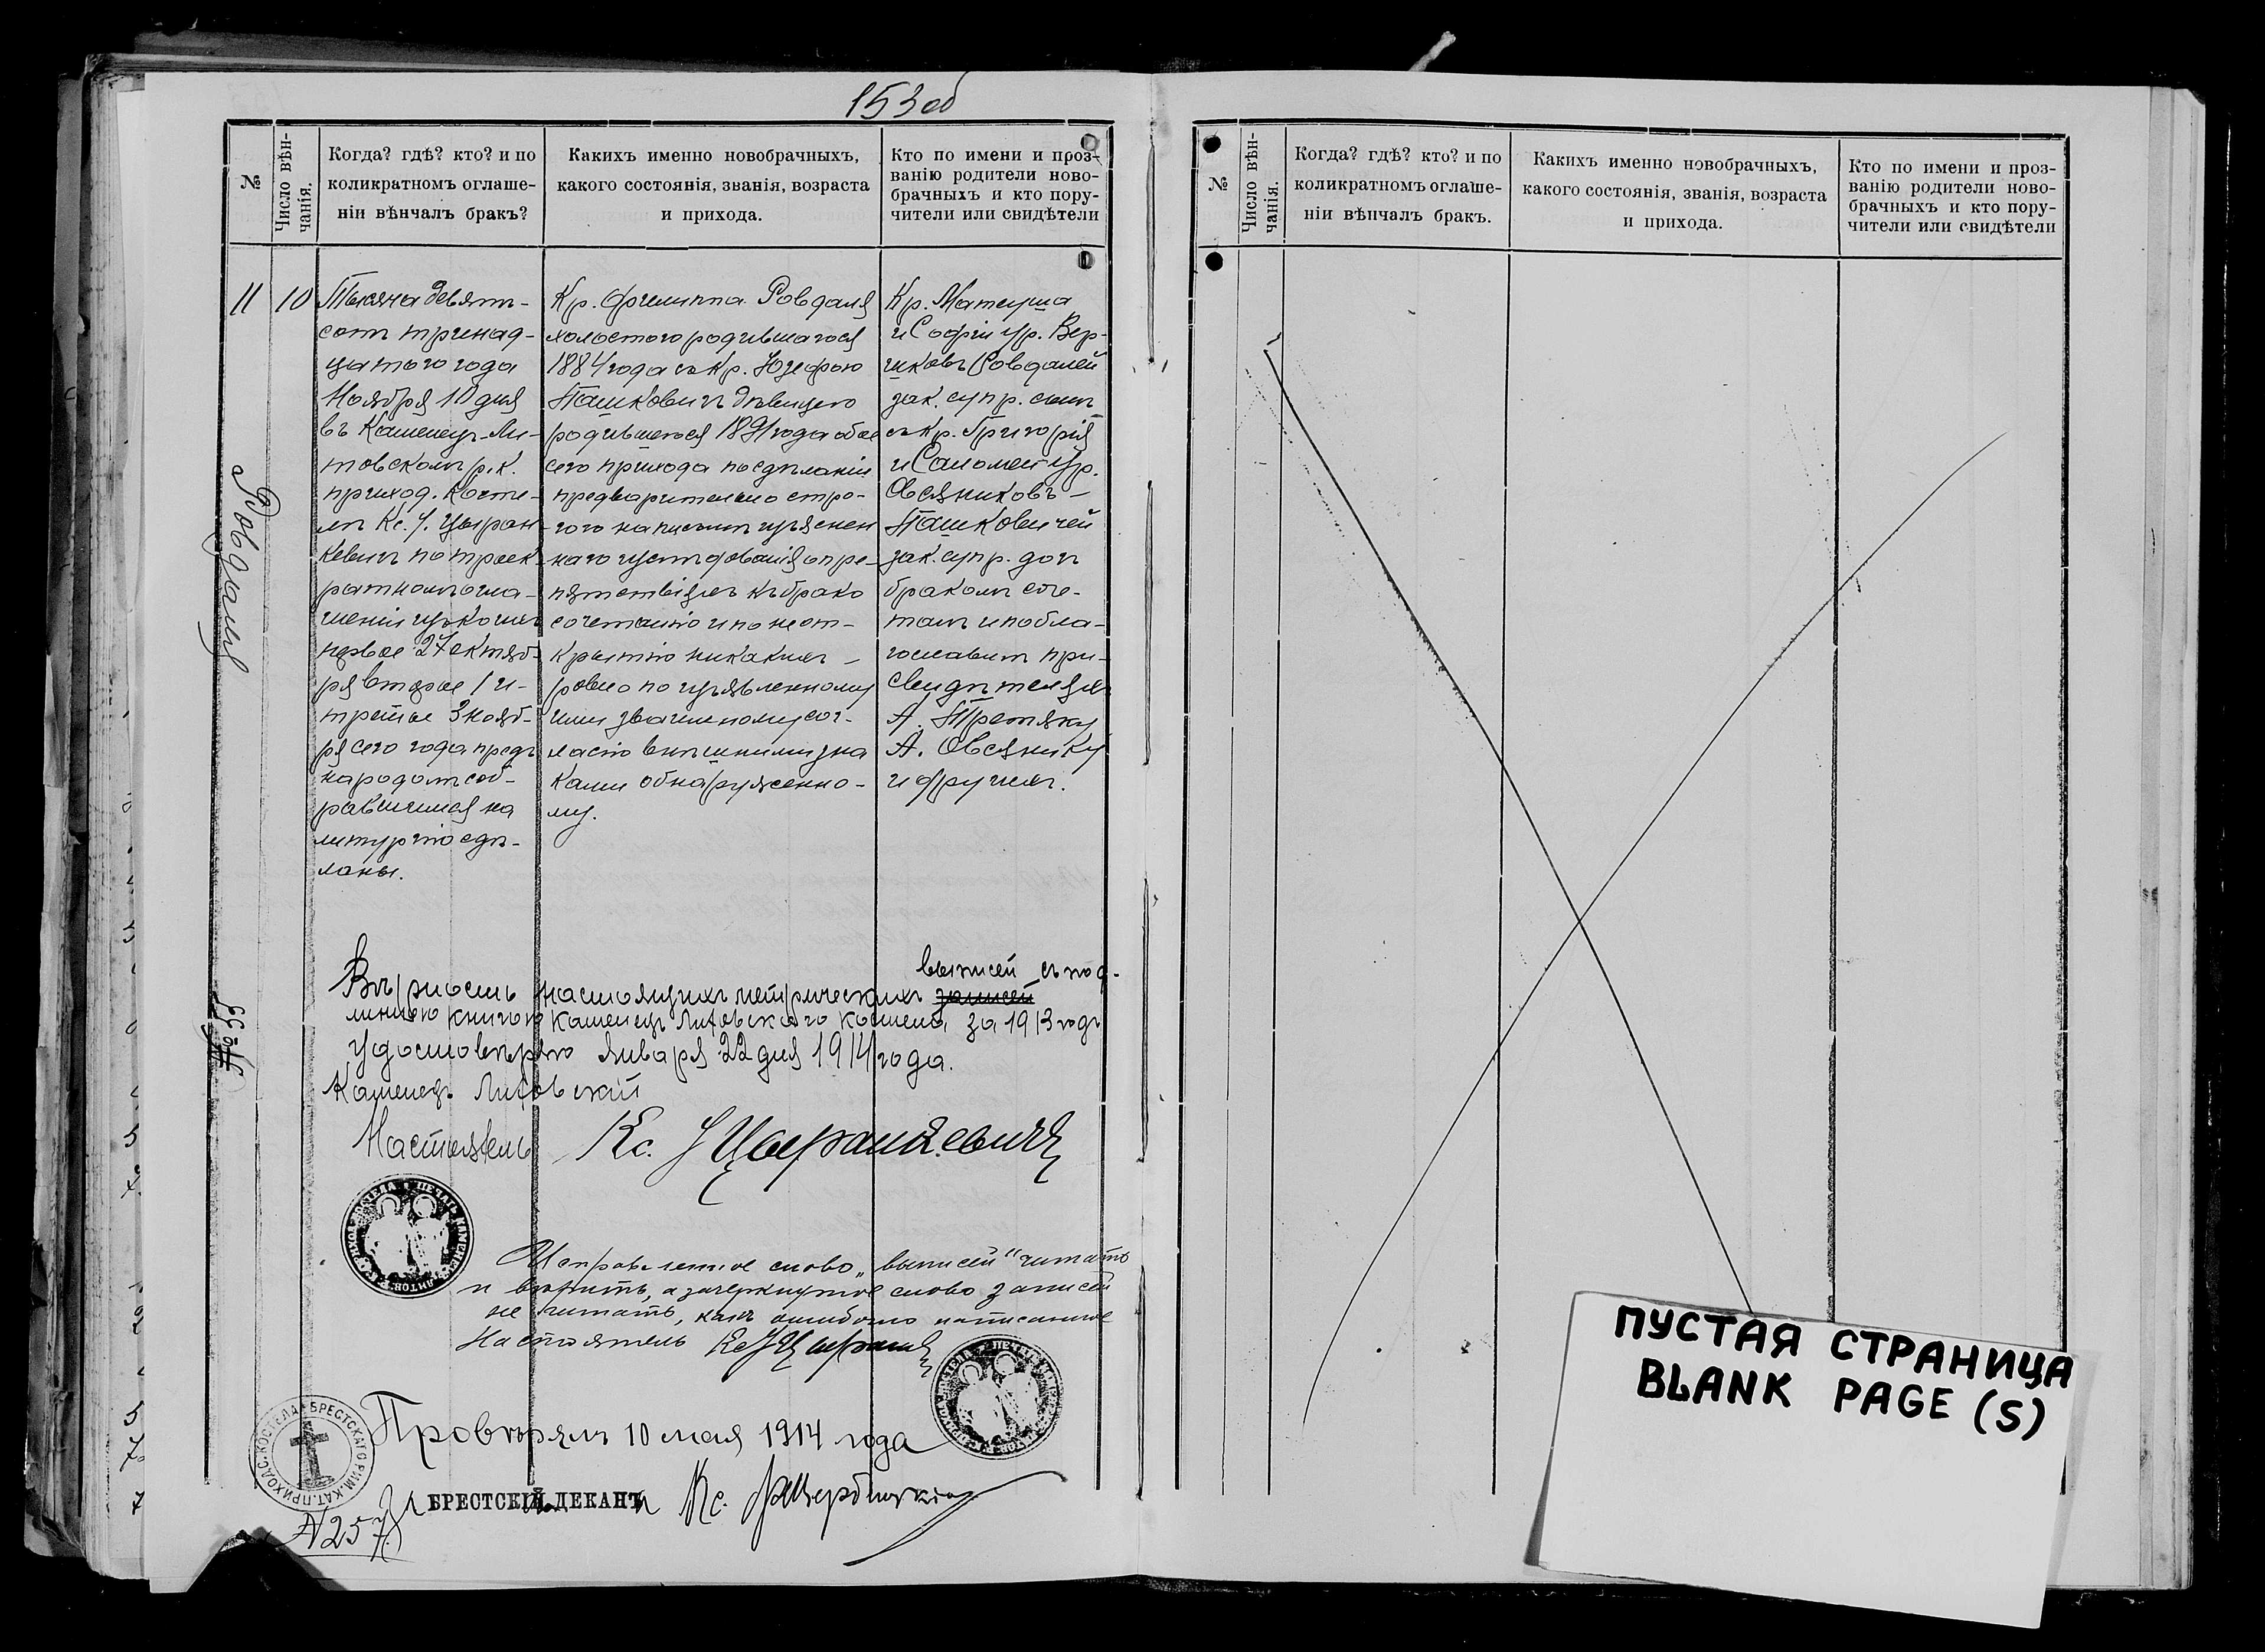 153 об
№
Число вѣн-
чанія.
Когда? гдѣ? кто? и по
коликратномъ оглаше-
ніи вѣнчалъ бракъ?
Какихъ именно новобрачныхъ,
какого состоянія, званія, возраста
и прихода.
Кто по имени и проз-
ванію родители ново-
брачныхъ и кто пору-
чители или свидѣтели
11
10
Ровдаль
Тысяча девять-
сотъ тринад-
цатого года
Ноября 10 дня
въ Каменецъ-Ли-
товскомъ р. к.
приход. косте-
лѣ Кс. У. Цыран-
кевичъ по троек-
ратномъ огла-
шеніи изъ коихъ
первое 27 октяб-
ря второе 1 и-
третье 3 нояб-
ря сего года предъ
народомъ соб-
равшимся на
литургію сдѣ-
ланы.
Кр. Филиппа Ровдаля
холостого родившагося
1884 года съ Кр. Юзефою
Пашковичъ дѣвицею
родившеюся 1891 года обое
сего прихода по сдѣланіи
предварительно стро-
гого на письмѣ изъяснен
наго изслѣдованія о пре-
пятствіяхъ къ брако
сочетанію и по неот-
крытію никакихъ —
ровно по изъявленному
ими взаимному сог-
ласію внѣшними зна
ками обнаруженно-
му.
Кр. Матеуша
и Софіи ур. Вер-
циковъ Ровдалей
зак. супр. сынъ
съ Кр. Григорія
и Саломеи ур.
Овсяниковъ —
Пашковичей
зак. супр. доч
бракомъ соче-
талъ и побла-
гославилъ при-
свидѣтеляхъ
А. Третяку
А. Овсянику
и другихъ.
выписей съ под-
Вѣрность настоящихъ метрическихъ записей
линною книгою Каменецъ Литовскаго костела за 1913 годъ
удостовѣряю Января 22 дня 1914 года.
Каменецъ Литовскій
№ 33
Настоятель Кс. У Цыранкевичъ
Исправленное слово „выписей" читать
и вѣрить, а зачеркнутое слово записей
не читать, какъ ошибочно написанное
Настоятель Кс У Цыранк
Провѣрялъ 10 мая 1914 года
БРЕСТСКІЙ ДЕКАНЪ Кс.
ПРИХОДС. КОСТЕЛА БРЕСТСКАГО РИМ. КАТ.
№ 257
№
Число вѣн-
чанія.
Когда? гдѣ? кто? и по
коликратномъ оглаше-
ніи вѣнчалъ бракъ.
Какихъ именно новобрачныхъ,
какого состоянія, званія, возраста
и прихода.
Кто по имени и проз-
ванію родители ново-
брачныхъ и кто пору-
чители или свидѣтели
ПУСТАЯ СТРАНИЦА
BLANK PAGE (S)